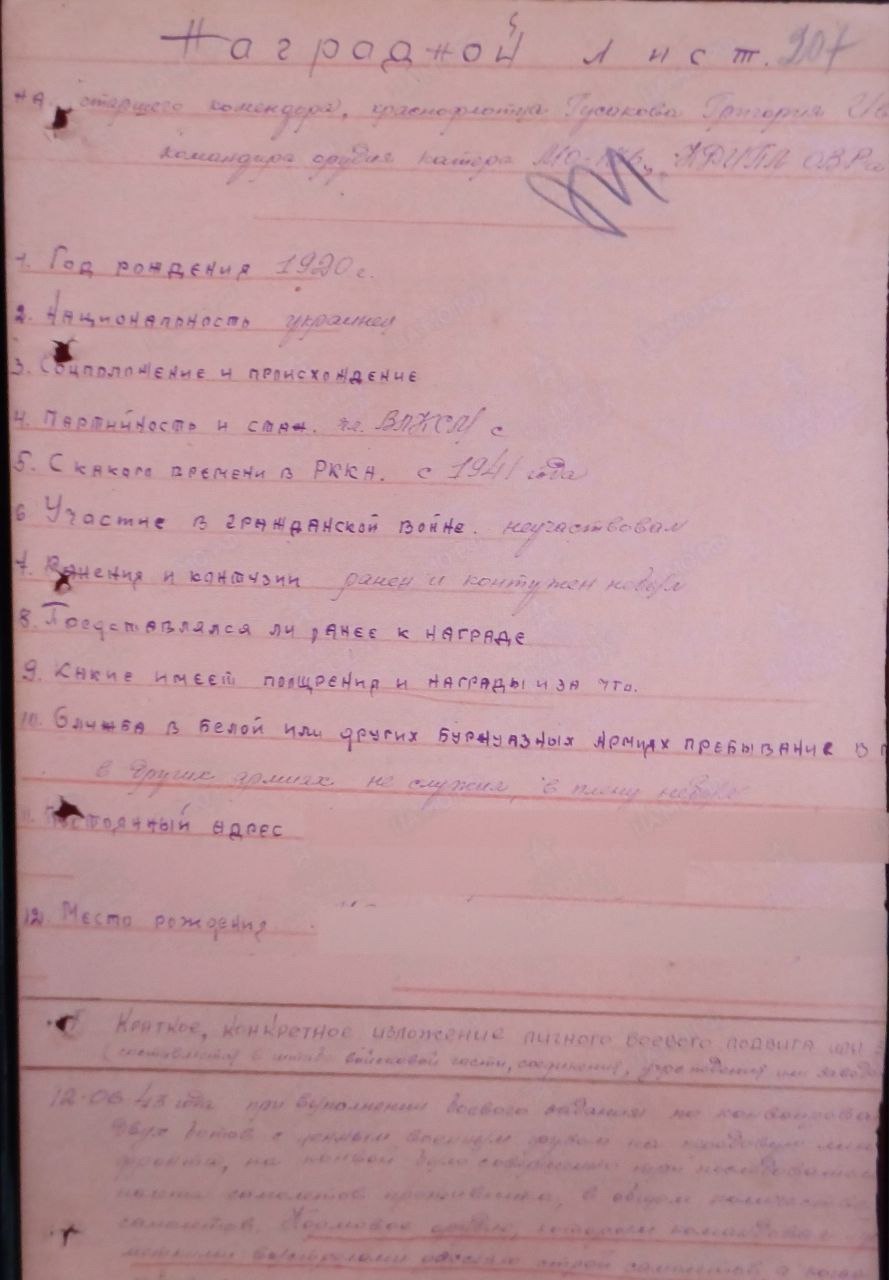 Наградной лист. 207
на старшего комендора, краснофлотца Гусакова Григория
командира орудия катера МО-, КДИПЛ ОВРа
1. Год рождения 1920 г.
2. Национальность украинец
3. Соцположение и происхождение
4. Партийность и стаж. чл. ВЛКСМ с
5. С какого времени в РККА. с 1941 года
6 Участие в гражданской войне. неучаствовал
7. Ранения и контузии ранен и контужен небыл
8. Представлялся ли ранее к награде
9. Какие имеет поощрения и награды и за что.
10. Служба в белой или других буржуазных армиях пребывание в п
в других армиях не служил, в плену небыл
11. Постоянный адрес
12. Место рождения
Краткое, конкретное изложение личного боевого подвига или
(составляется в штабе войсковой части, соединения, учреждения или завода
12.06 43 года при выполнении боевого задания по конвоирова
двух ботов с ценным военным грузом на передовую лин
фронта, на конвой было совершено три последовател
налета самолетов противника, в общем количестве
самолетов. Кормовое орудие, которым командовал
меткими выстрелами самолетов